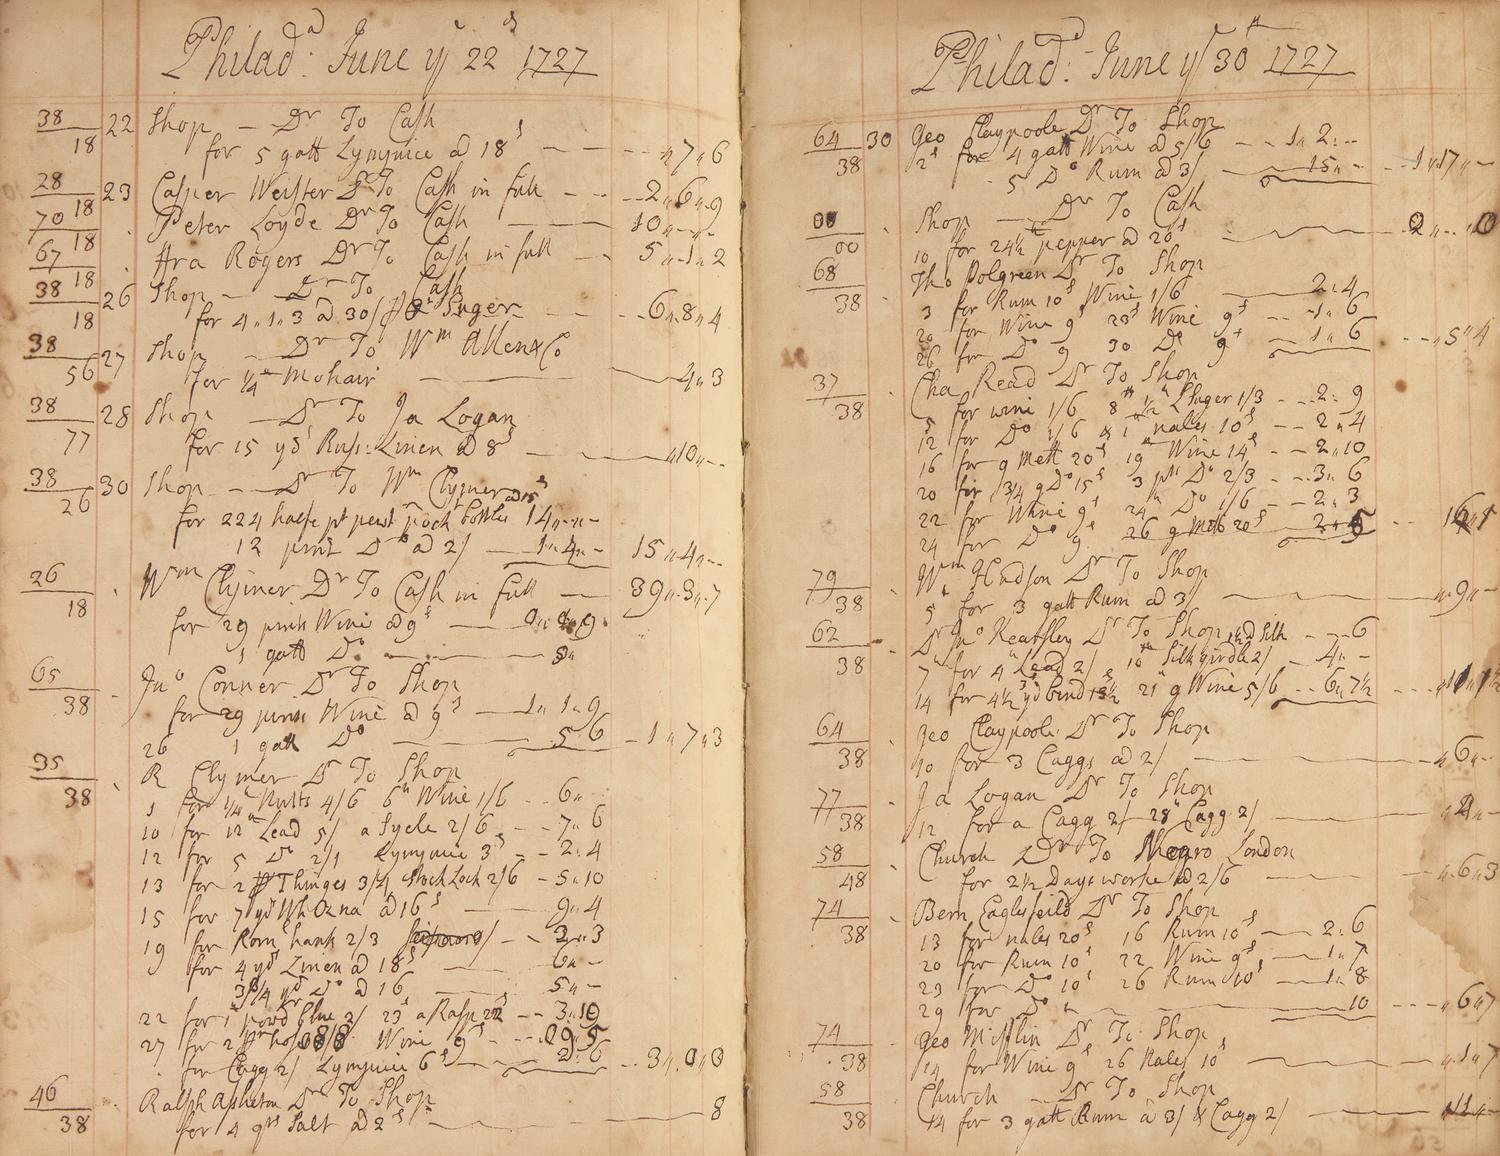 Philad.a June ye 22d 1727
38/18 22 Shop — Dr To Cash
for 5 gall Lymjuice @ 18s — — — „ 7 „ 6
28/18 23 Casper Weister Dr To Cash in full — — 2 „ 6 „ 9
70/18 Peter Loyde Dr To Cash — 10 „ - „ -
67/18 Hra Rogers Dr To Cash in full — 5 „ 1 „ 2
38/18 26 Shop — Dr To Cash
for 4 „ 1 „ 3 @ 30/ Suger — 6 „ 8 „ 4
38/56 27 Shop — Dr To Wm Allen & Co
for 1/4 Mohair — 4 „ 3
38/77 28 Shop — Dr To Ja Logan
for 15 yds Russ: Linen @ 8s — „ 10 „ -
38/26 30 Shop — Dr To Wm Clymer @ 15s
for 224 halfe pt pock bottles 14 „ - „ -
12 pint Do @ 2/ — 1 „ 4 „ - 15 „ 4 „ -
26/18 Wm Clymer Dr To Cash in full — 39 „ 3 „ 7
for 29 pints Wine @ 9s —
1 gall Do —
65/38 Jno Conner Dr To Shop
for 29 pints Wine @ 9s — 1 „ 1 „ 9
26 1 gall Do — 5 6 — 1 „ 7 „ 3
35/38 R Clymer Dr To Shop
5 for 1/4 Nutts 4/6 6 Wine 1/6 - - 6 „
10 for 12 Lead 5/ a Sycle 2/6 - - 7 „ 6
12 for 5 Do 2/1 Lymjuice 3s - - 2 „ 4
13 for 2 Thinges 3/4 Stock Lock 2/6 - 5 „ 10
15 for 7 yd Wh Ozna @ 16s — 9 „ 4
19 for Rom hank 2/3 — 2 „ 3
for 4 yd Linen @ 18s — 6 „ -
3 3/4 yd Do @ 16 — 5 „ -
22 for 1 powd blue 2/ 23 a Rasp 22 - - 3 „ 10
27 for 2 Wine 9s
for Cagg 2/ Lymjuice 6s — 2 „ 6 - - 3 „ 0 „ 0
46/38 Ralph Asheton Dr To Shop
for 4 qrs Salt @ 2s — 8
Philad.a June ye 30th 1727
64/38 30 Geo Claypoole Dr To Shop
2s for 4 gall Wine @ 5/6 — 1 „ 2 „ -
5 Do Rum @ 3/ 15 „ - - - 1 „ 17 „ -
00/00 Shop — Dr To Cash
10 for 24 1/2 pepper @ 20s — 2 „ - „ 10
68/38 Tho Polgreen Dr To Shop
3 for Rum 10s Wine 1/6 — 2 „ 4
20 for Wine 9s 23 Wine 9s — 1 „ 6
26 for Do 9 30 Do 9s — 1 „ 6 - - „ 5 „ 4
37/38 Cha Read Dr To Shop
5 for wine 1/6 8 1/2 Shuger 1/3 - - 2 „ 9
12 for Do 1/6 & 1 nales 10s - - 2 „ 4
16 for g Mell 20s 19 Wine 14s - - 2 „ 10
20 for 3/4 g Do 15s 3 pt Do 2/3 - - 3 „ 6
22 for Wine 9s 24 Do 1/6 - - 2 „ 3
24 for Do 9s 26 g Mell 20s
79/38 Wm Hudson Dr To Shop
5 for 3 gall Rum @ 3/ — „ 9 „ -
62/38 Dr Jno Kearsley Dr To Shop 1 1/2 d Silk - - 6
7 for 4 Lead 2/ 10 Silk girdle 2/ - 4 „ -
14 for 4 1/2 yd bind 21 g Wine 5/6 - - 6 „ 7 1/2
64/38 Geo Claypoole Dr To Shop
10 for 3 Caggs @ 2/ — „ 6 „ -
77/38 Ja Logan Dr To Shop
12 for a Cagg 2/ 28 Cagg 2/ — „ 4 „ -
58/48 Church Dr To Negro London
for 2 1/2 Days worke @ 2/6 — „ 6 „ 3
74/38 Benn Eaglesfeild Dr To Shop
13 for nales 20s 16 Rum 10s — 2 „ 6
20 for Rum 10s 22 Wine 9s — 1 „ 7
23 for Do 10s 26 Rum 10s — 1 „ 8
29 for Do — 10 - - - „ 6 „ 7
74/38 Geo Mifflin Dr To Shop
14 for Wine 9s 26 Nales 10s — „ 1 „ 7
58/38 Church — Dr To Shop
14 for 3 gall Rum @ 3/ & Cagg 2/ — „ 11 „ -